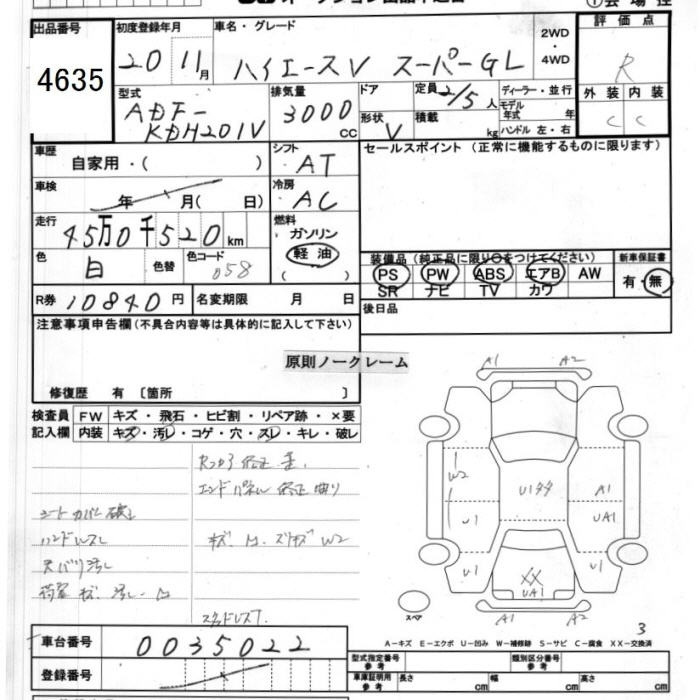 出品番号
4635
初度登録年月
20 11月
車名・グレード
ハイエースV スーパーGL
2WD
・
4WD
評価点
R
外装 内装
C C
型式
ADF-
KDH201V
排気量
3000
CC
ドア
形状
V
定員 2/5 人
積載 kg
ディーラー・並行
モデル
年式 年
ハンドル 左・右
車歴
自家用・( )
シフト
AT
セールスポイント (正常に機能するものに限ります)
車検
年 月( 日)
冷房
AC
走行
45万0千520km
燃料
ガソリン
軽油
( )
色
白
色替
色コード
058
装備品 (純正品に限り○をつけてください)
PS PW ABS エアB AW
SR ナビ TV カワ
新車保証書
有・無
R券 10840円
名変期限 月 日
後日品
注意事項申告欄(不具合内容等は具体的に記入して下さい)
原則ノークレーム
修復歴 有 〔箇所 〕
検査員
記入欄
FW キズ・飛石・ヒビ割・リペア跡・×要
内装 キズ・汚レ・コゲ・穴・スレ・キレ・破レ
エンドパネル 修正 曲り
シートカバー 破レ
ハンドルスレ
キズ、凹、スリキズ W2
スタッドレス7
A1 A2
W2 U1 U1タタ A1 UA1
U1 XX UA1 U1
A1 A2
スペア
3
A-キズ E-エクボ U-凹み W-補修跡 S-サビ C-腐食 XX-交換済
車台番号
0035022
登録番号
型式指定番号
参考
類別区分番号
参考
車庫証明用
参考
長さ cm
幅 cm
高さ cm